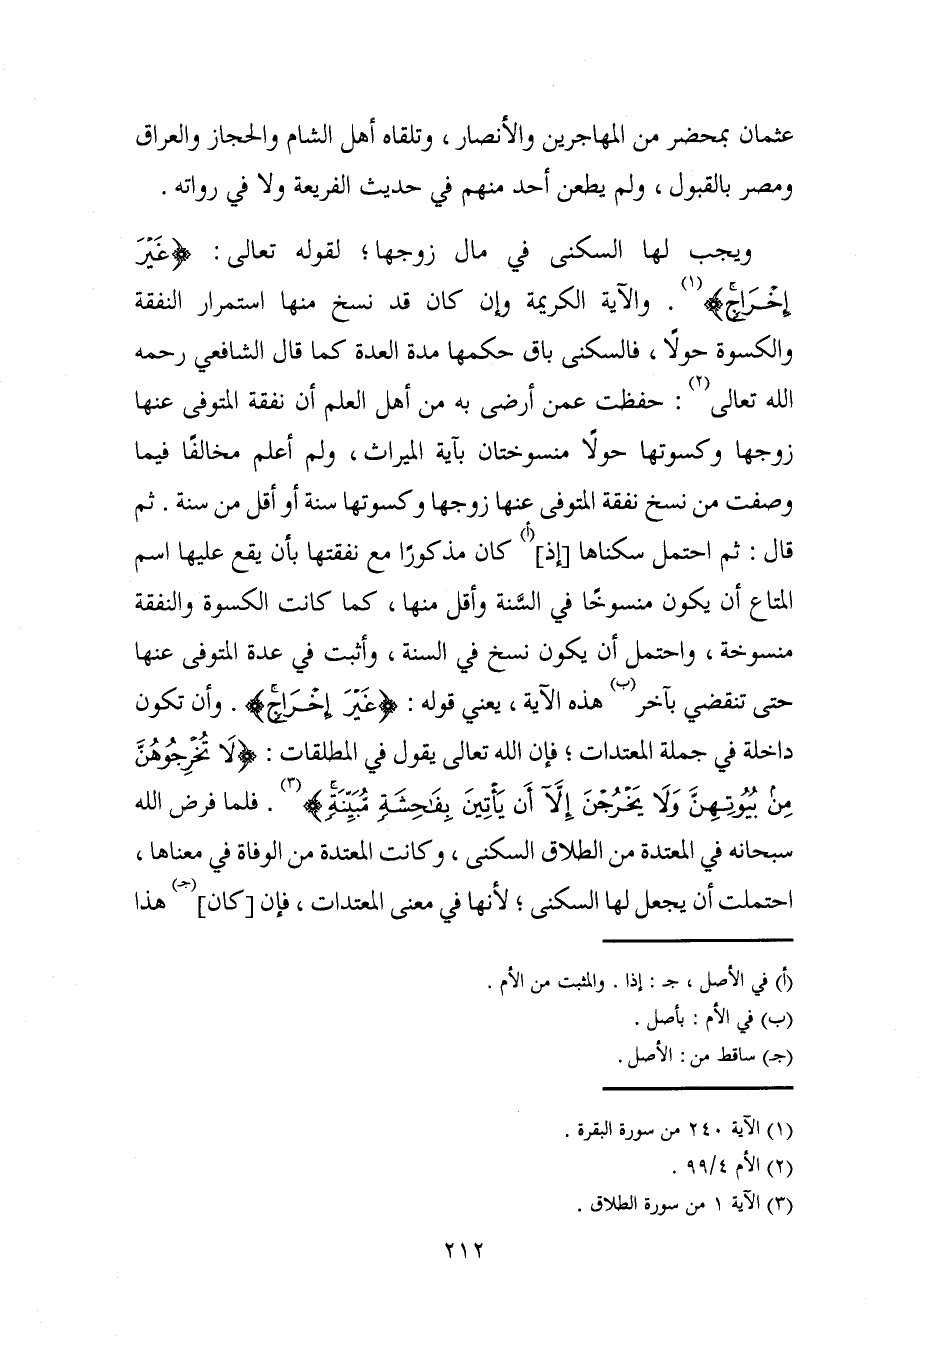 عثمان بمحضر من المهاجرين والأنصار ، وتلقاه أهل الشام والحجاز والعراق
ومصر بالقبول ، ولم يطعن أحد منهم في حديث الفريعة ولا في رواته .
ويجب لها السكنى في مال زوجها؛ لقوله تعالى : ﴿غَيْرَ
إِخْرَاجٍ﴾(١) . والآية الكريمة وإن كان قد نسخ منها استمرار النفقة
والكسوة حولًا ، فالسكنى باق حكمها مدة العدة كما قال الشافعي رحمه
الله تعالى(٢) : حفظت عمن أرضى به من أهل العلم أن نفقة المتوفى عنها
زوجها وكسوتها حولًا منسوختان بآية الميراث ، ولم أعلم مخالفًا فيما
وصفت من نسخ نفقة المتوفى عنها زوجها وكسوتها سنة أو أقل من سنة . ثم
قال : ثم احتمل سكناها [إذ](أ) كان مذكورًا مع نفقتها بأن يقع عليها اسم
المتاع أن يكون منسوخًا في السَّنة وأقل منها ، كما كانت الكسوة والنفقة
منسوخة ، واحتمل أن يكون نسخ في السنة ، وأثبت في عدة المتوفى عنها
حتى تنقضي بآخر(ب) هذه الآية ، يعني قوله : ﴿غَيْرَ إِخْرَاجٍ﴾ . وأن تكون
داخلة في جملة المعتدات ؛ فإن الله تعالى يقول في المطلقات : ﴿لَا تُخْرِجُوهُنَّ
مِنۢ بُيُوتِهِنَّ وَلَا يَخْرُجْنَ إِلَّآ أَن يَأْتِينَ بِفَٰحِشَةٍ مُّبَيِّنَةٍ﴾(٣) . فلما فرض الله
سبحانه في المعتدة من الطلاق السكنى ، وكانت المعتدة من الوفاة في معناها ،
احتملت أن يجعل لها السكنى ؛ لأنها في معنى المعتدات ، فإن [كان](جـ) هذا
(أ) في الأصل ، جـ : إذا . والمثبت من الأم .
(ب) في الأم : بأصل .
(جـ) ساقط من : الأصل .
(١) الآية ٢٤٠ من سورة البقرة .
(٢) الأم ٩٩/٤ .
(٣) الآية ١ من سورة الطلاق .
٢١٢